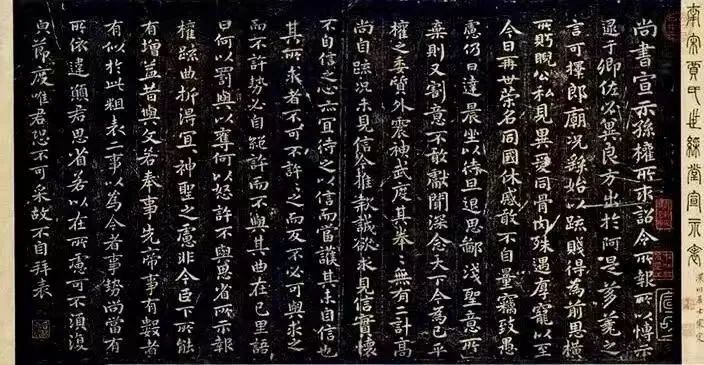 南宋賈氏世綵堂宣示表
尚書宣示孫權所求詔令所報所以博示
逮于卿佐必冀良方出於阿是芻蕘之
言可擇郎廟況繇始以疏賤得為前恩橫
所眄睨公私見異愛同骨肉殊遇厚寵以至
今日再世榮名同國休慼敢不自量竊致愚
慮仍日達晨坐以待旦退思鄙淺聖意所
棄則又割意不敢獻聞深念天下今為已平
權之委質外震神武度其拳々無有二計高
尚自疏況未見信今推款誠欲求見信實懷
不自信之心亦宜待之以信而當護其未自信也
其所求者不可不許許之而反不必可與求之
而不許勢必自絕許而不與其曲在己里語
曰何以罰與以奪何以怒許不與思省所示報
權疏曲折得宜宜神聖之慮非今臣下所能
有增益昔與文若奉事先帝事有數者
有似於此粗表二事以為今者事勢尚當有
所依違願君思省若以在所慮可不須復
節度唯君恐不可采故不自拜表